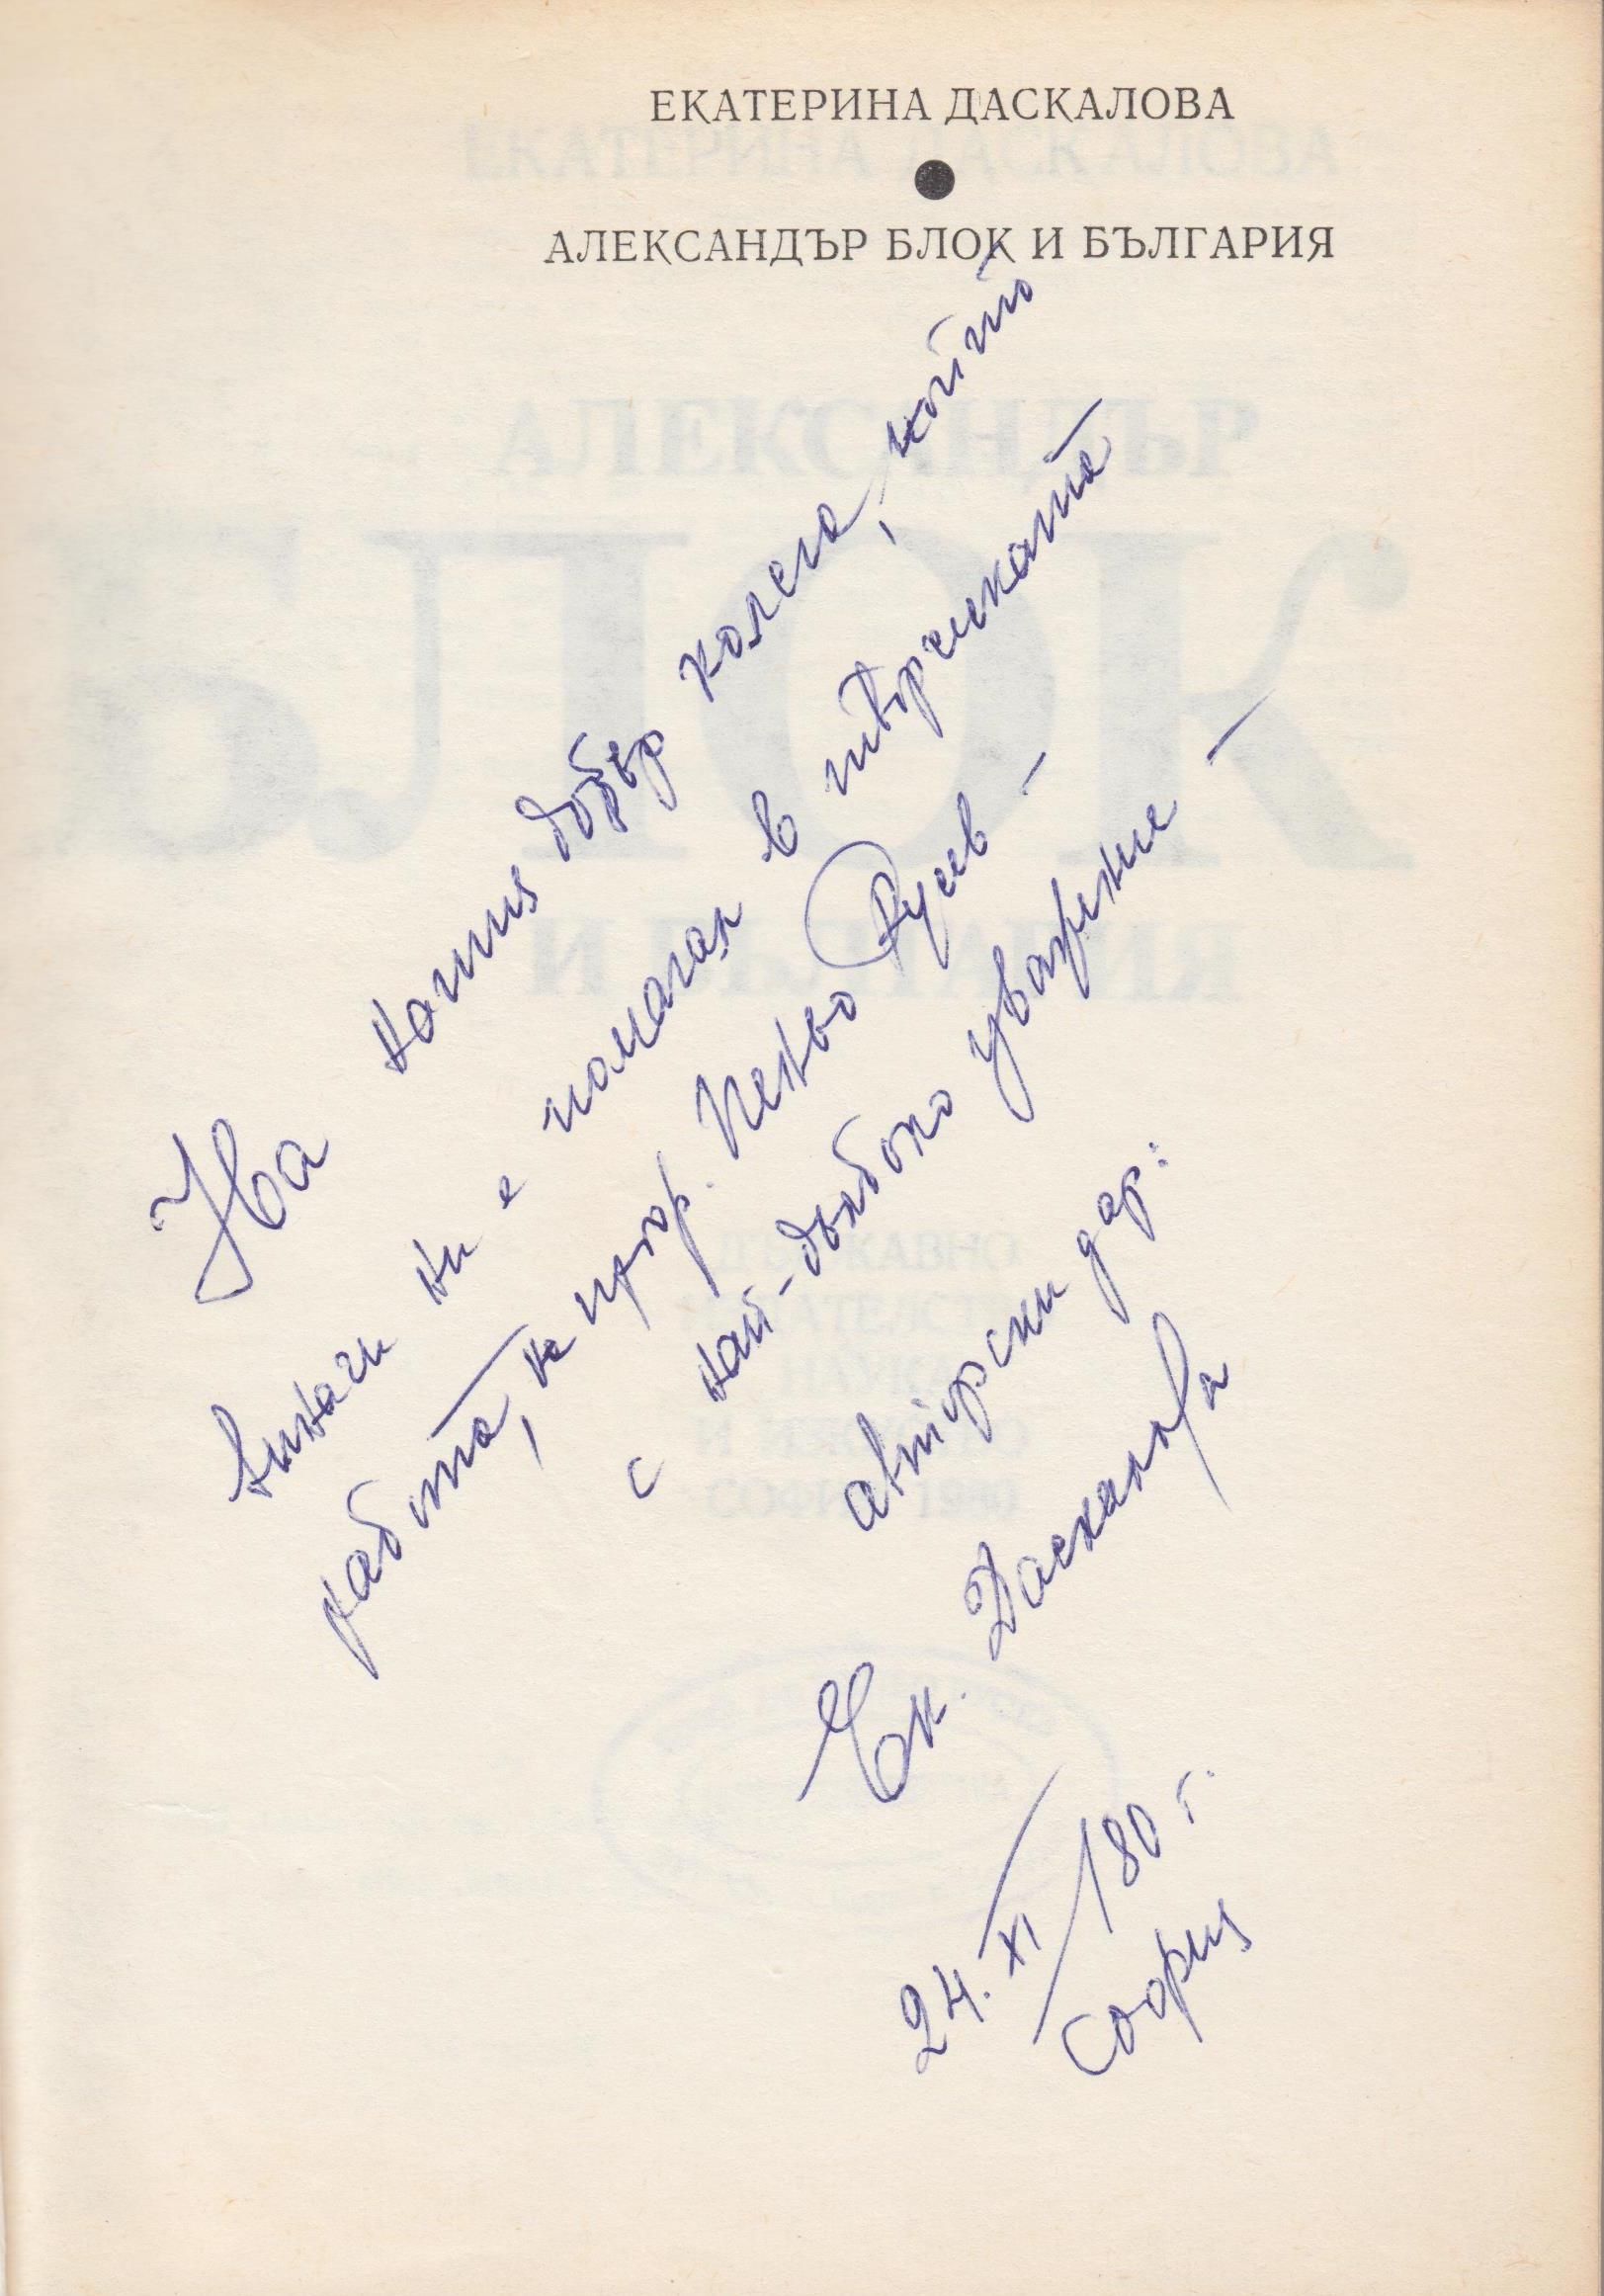 ЕКАТЕРИНА ДАСКАЛОВА
АЛЕКСАНДЪР БЛОК И БЪЛГАРИЯ
На нашия добър колега, който
винаги ни е помагал в творческата
работа, на проф. Пеньо Русев –
с най-дълбоко уважение –
авторски дар:
Ек. Даскалова
24. XI / 80 г.
София
ЕКАТЕРИНА ДАСКАЛОВА
АЛЕКСАНДЪР
БЛОК
И БЪЛГАРИЯ
ДЪРЖАВНО
ИЗДАТЕЛСТВО
НАУКА
И ИЗКУСТВО
СОФИЯ 1980